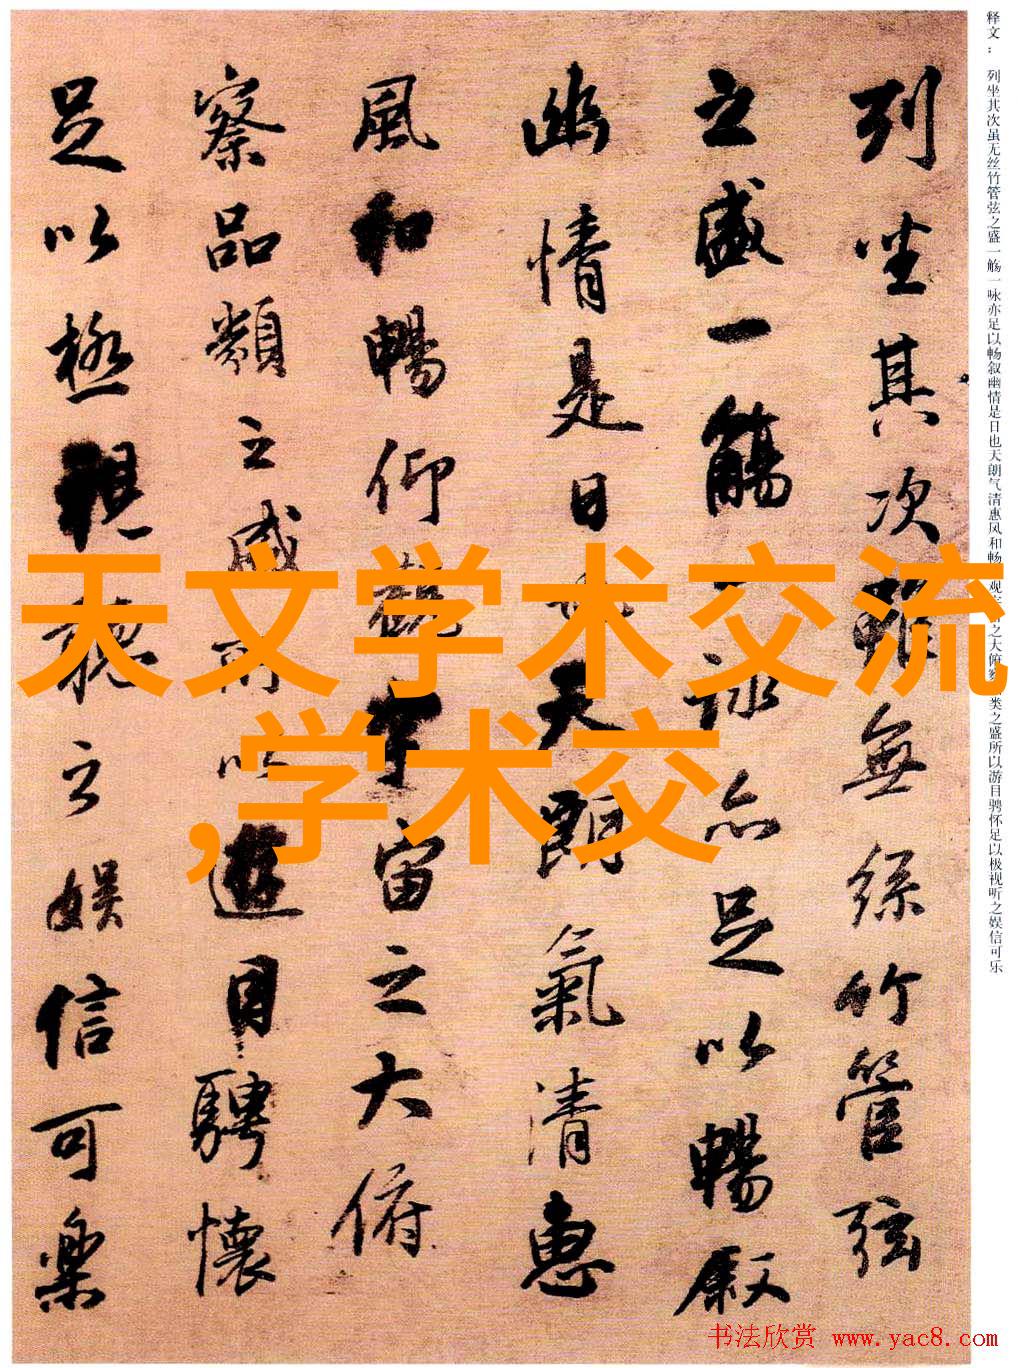 列坐其次雖無絲竹管弦
之盛一觴一詠亦足以暢敘
幽情是日也天朗氣清惠
風和暢仰觀宇宙之大俯
察品類之盛所以遊目騁懷
足以極視聽之娛信可樂
释文：列坐其次虽无丝竹管弦之盛一觞一咏亦足以畅叙幽情是日也天朗气清惠风和畅观之大俯类之盛所以游目骋怀足以极视听之娱信可乐
天文学术交流
,学术交
书法欣赏 www.yac8.com